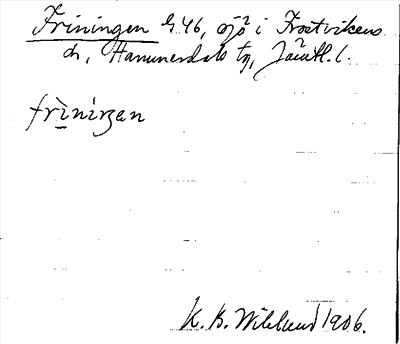 Friningen G 46, sjö i Frostvikens
sn, Hammerdals tg, Jämtl. l.
frìníŋen
K. B. Wiklund 1906.